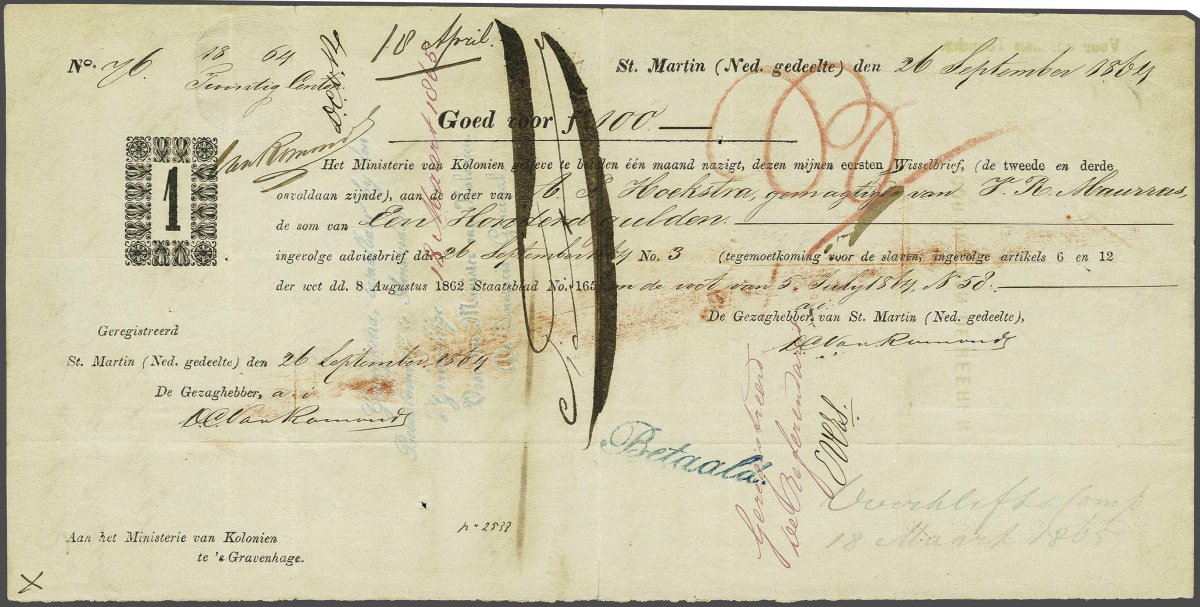 No. 76.
18 64
Twintig Cents.
18 April.
St. Martin (Ned. gedeelte) den 26 September 1864
van Romondt
1
Goed voor f 100.
Het Ministerie van Kolonien gelieve te betalen één maand nazigt, dezen mijnen eersten Wisselbrief, (de tweede en derde
onvoldaan zijnde), aan de order van H. P. Hoekstra, gemagtigd van
de som van Een Honderd gulden
ingevolge adviesbrief dd. 26 September 64 No. 3 (tegemoetkoming voor de slaven, ingevolge artikels 6 en 12
der wet dd. 8 Augustus 1862 Staatsblad No. 165) en de wet van 5 July 1864, N 58.
De Gezaghebber van St. Martin (Ned. gedeelte),
a.i.
D.C. van Romondt
Geregistreerd
St. Martin (Ned. gedeelte) den 26 September 1864
De Gezaghebber, a i
D.C. van Romondt
18 Maart 1865
Betaald.
Geregistreerd
De Referendaris
18 Maart 1865
no 2537
Aan het Ministerie van Kolonien
te 's Gravenhage.
X